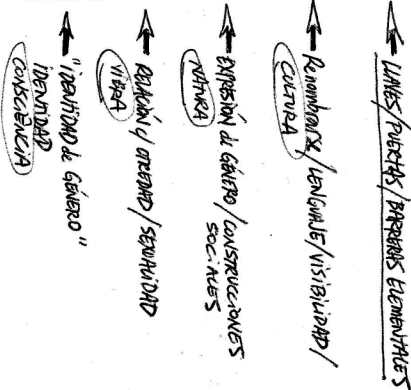 LLAVES/PUERTAS/BARRERAS ELEMENTALES
RENOMBRARSE/LENGUAJE/VISIBILIDAD/
CULTURA
EXPRESIÓN de GÉNERO/CONSTRUCCIONES
SOCIALES
NATURA
RELACIÓN c/ OTREDAD/SEXUALIDAD
VIBRA
"IDENTIDAD de GÉNERO"
IDENTIDAD
CONSCIÈNCIA